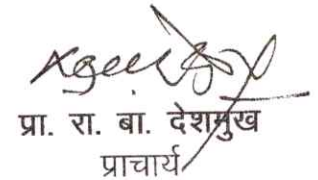 प्रा. रा. बा. देशमुख
प्राचार्य